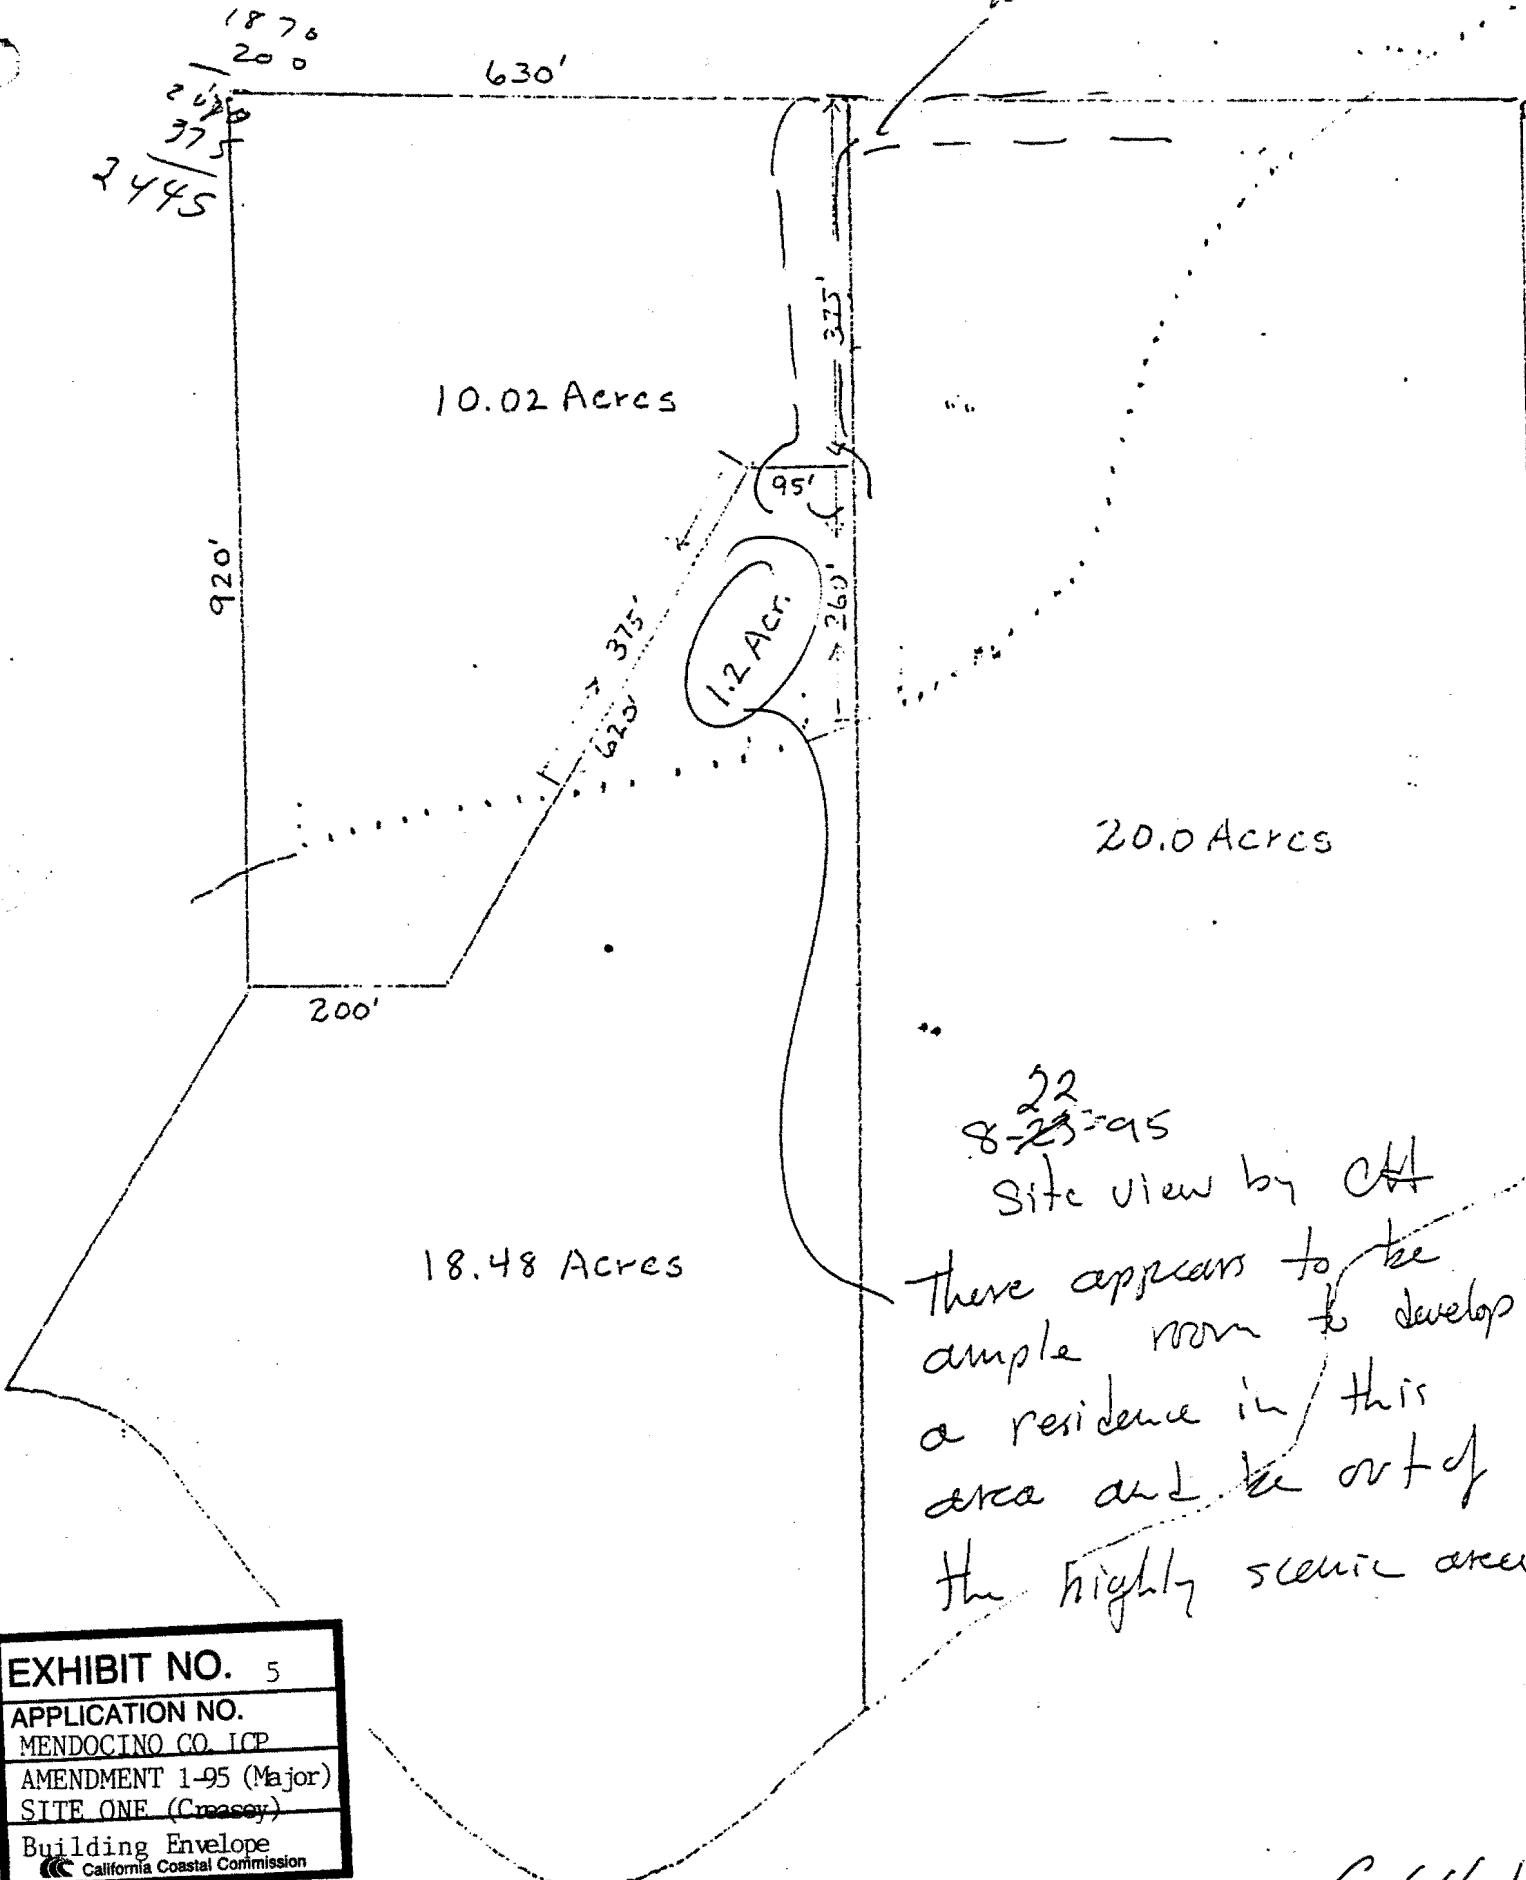 1870
200
375
2445
630'
375'
10.02 Acres
95'
920'
260'
375'
1.2 Acr.
620'
20.0 Acres
200'
22
8-23-95
Site view by CH
18.48 Acres
There appears to be
ample room to develop
a residence in this
area and be out of
the highly scenic area
EXHIBIT NO. 5
APPLICATION NO.
MENDOCINO CO. LCP
AMENDMENT 1-95 (Major)
SITE ONE (Creasey)
Building Envelope
California Coastal Commission